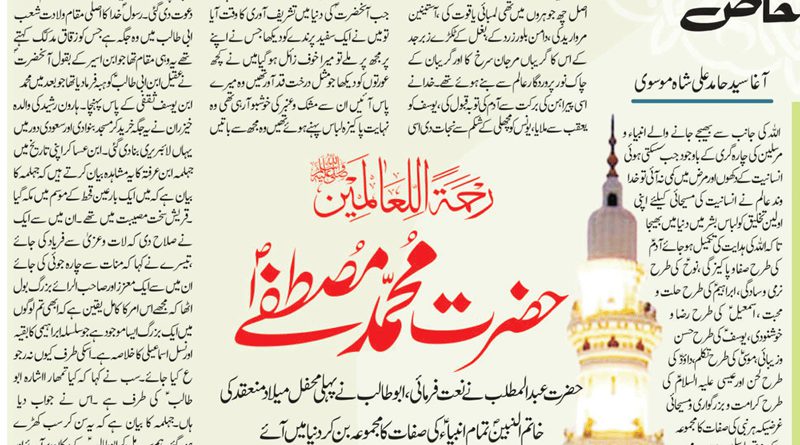 خاص
آغا سید حامد علی شاہ موسوی
اللہ کی جانب سے بھیجے جانے والے انبیاء و
مرسلین کی چارہ گری کے باوجود جب سسکتی ہوئی
انسانیت کے دکھوں اور مرض میں کمی نہ آئی تو خدا
وند عالم نے انسانیت کی مسیحائی کیلئے اپنی
اولین تخلیق کو لباس بشر میں دنیا میں بھیجا
تاکہ اللہ کی ہدایت کی تکمیل ہوجائے آدمؑ
کی طرح صفاو پاکیزگی، نوحؑ کی طرح
نرمی و سادگی، ابراہیمؑ کی طرح حلت و
محبت، اسمعیلؑ کی طرح رضا و
خوشنودی، یوسفؑ کی طرح حسن
وزیبائی، موسیٰؑ کی طرح تکلم، داؤدؑ کی
طرح لحن اور عیسیٰ علیہ السلام کی
طرح کرامت و بزرگواری و مسیحائی
غرضیکہ ہر نبی کی صفات کا مجموعہ
رحمۃ اللعالمین ﷺ
حضرت محمدؐ مصطفےٰؐ
حضرت عبدالمطلب نے نعت فرمائی، ابو طالب نے پہلی محفل میلاد منعقد کی
خاتم النبیینؐ تمام انبیاءؑ کی صفات کا مجموعہ بن کر دنیا میں آئے
اصل چھ جوہروں میں تھی لمبائی یاقوت کی، آستینیں
مروارید کی، دامن بلور زرد کے، بغل کے ٹکڑے زبرجد
کے اس کا گریباں مرجان سرخ کا اور گریبان کے
چاک نور پروردگار عالم سے بنے ہوئے تھے۔ خدا نے
اسی پیراہن کی برکت سے آدم کی توبہ قبول کی، یوسف کو
یعقوب سے ملایا، یونس کو مچھلی کے شکم سے نجات دی اسی
جب آنحضرتؐ کی دنیا میں تشریف آوری کا وقت آیا
تو میں نے ایک سفید پرندے کو دیکھا جس نے اپنے
پر مجھ پر ملے تو میرا خوف زائل ہوگیا میں نے کچھ
عورتوں کو دیکھا جو مثل درخت قد آور تھیں وہ میرے
پاس آئیں ان سے مشک و عنبر کی خوشبو آرہی تھی وہ
نہایت پاکیزہ لباس پہنے ہوئے تھیں وہ مجھ سے باتیں
دعوت دی گئی۔ رسول خدا کا اصل مقام ولادت شعب
ابی طالب میں وہ جگہ ہے جس کو زقاق المدلک کہتے
تھے یہ وہی مقام تھا جو ابن اسیر کے بقول آنحضرت
نے عقیل ابن ابی طالبؑ کو ہبہ فرمادیا تھا جو بعد میں محمد
ابن یوسف ثقفی کے پاس پہنچا۔ ہارون رشید کی والدہ
خیزران نے یہ جگہ خرید کر مسجد بنوادی اور سعودی دور میں
یہاں لائبریری بنادی گئی۔ ابن عساکر اپنی تاریخ میں
جہلمہ ابن عرفتہ کا یہ مشاہدہ بیان کرتے ہیں کہ جہلمہ کا
بیان ہے کہ میں ایک بار عین قحط کے موسم میں مکہ گیا
۔ قریش سخت مصیبت میں تھے۔ ان میں سے ایک
نے صلاح دی کہ لات و عزیٰ سے فریاد کی جائے
، تیسرے نے کہا کہ منات سے چارہ جوئی کی جائے
ان میں سے ایک معزز اور صاحب الرائے بزرگ بول
اٹھا کہ مجھے اس امر کا کامل یقین ہے کہ ابھی تم لوگوں
میں ایک بزرگ ایسا موجود ہے جو سلسلہ ابراہیمی کا بقیہ
اور نسل اسماعیلی کا خلاصہ ہے۔ اسکی طرف کیوں نہ رجو
ع کیا جائے۔ سب نے کہا کہ کیا تمھارا اشارہ ابو
طالبؑ کی طرف ہے ۔ اس نے جواب دیا
ہاں۔ جہلمہ کا بیان ہے کہ یہ سن کر سب کھڑے